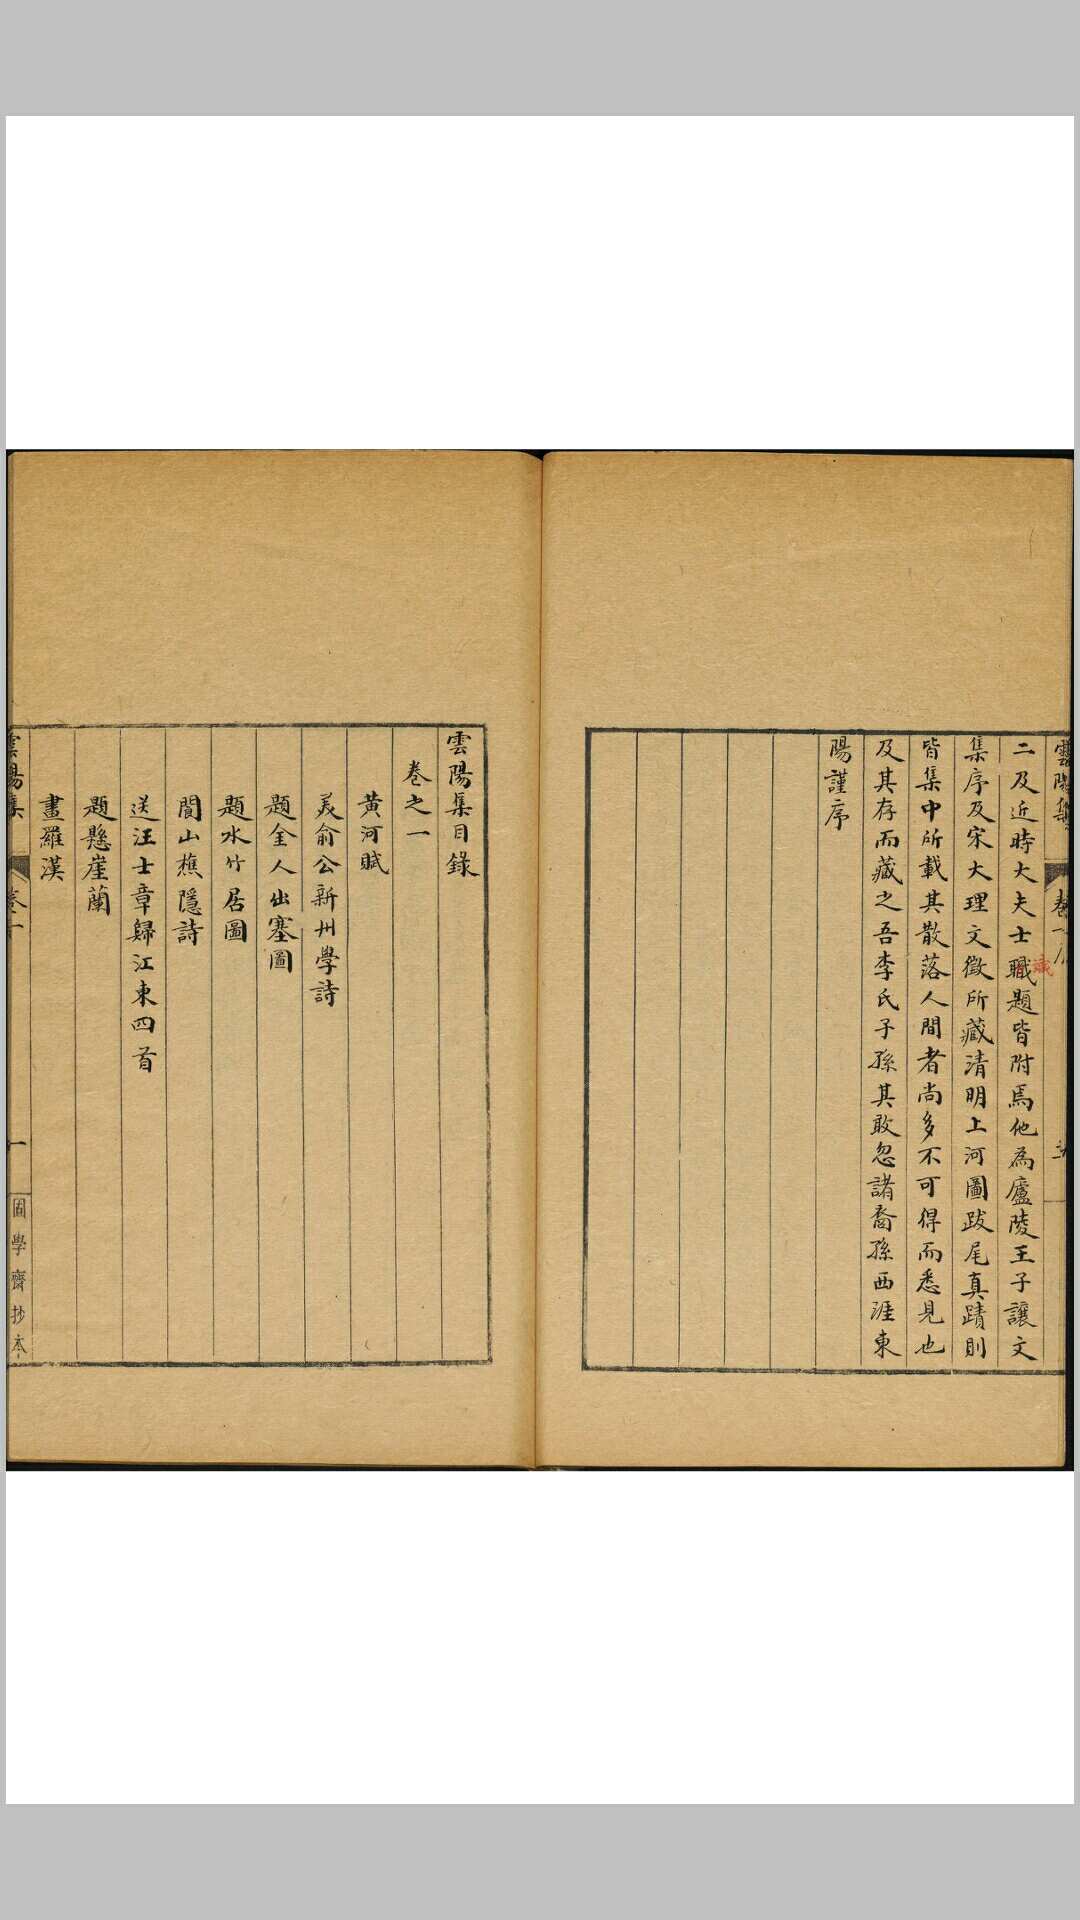 二及近時大夫士職題皆附焉他為廬陵王子讓文
識
集序及宋大理文徵所藏清明上河圖跋尾真蹟則
皆集中所載其散落人間者尚多不可得而悉見也
及其存而藏之吾李氏子孫其敢忽諸裔孫西涯東
陽謹序
雲陽集目錄
卷之一
黃河賦
美俞公新州學詩
題金人出塞圖
題水竹居圖
閬山樵隱詩
送汪士章歸江東四首
題懸崖蘭
畫羅漢
雲陽集
卷一
一
固學齋抄本